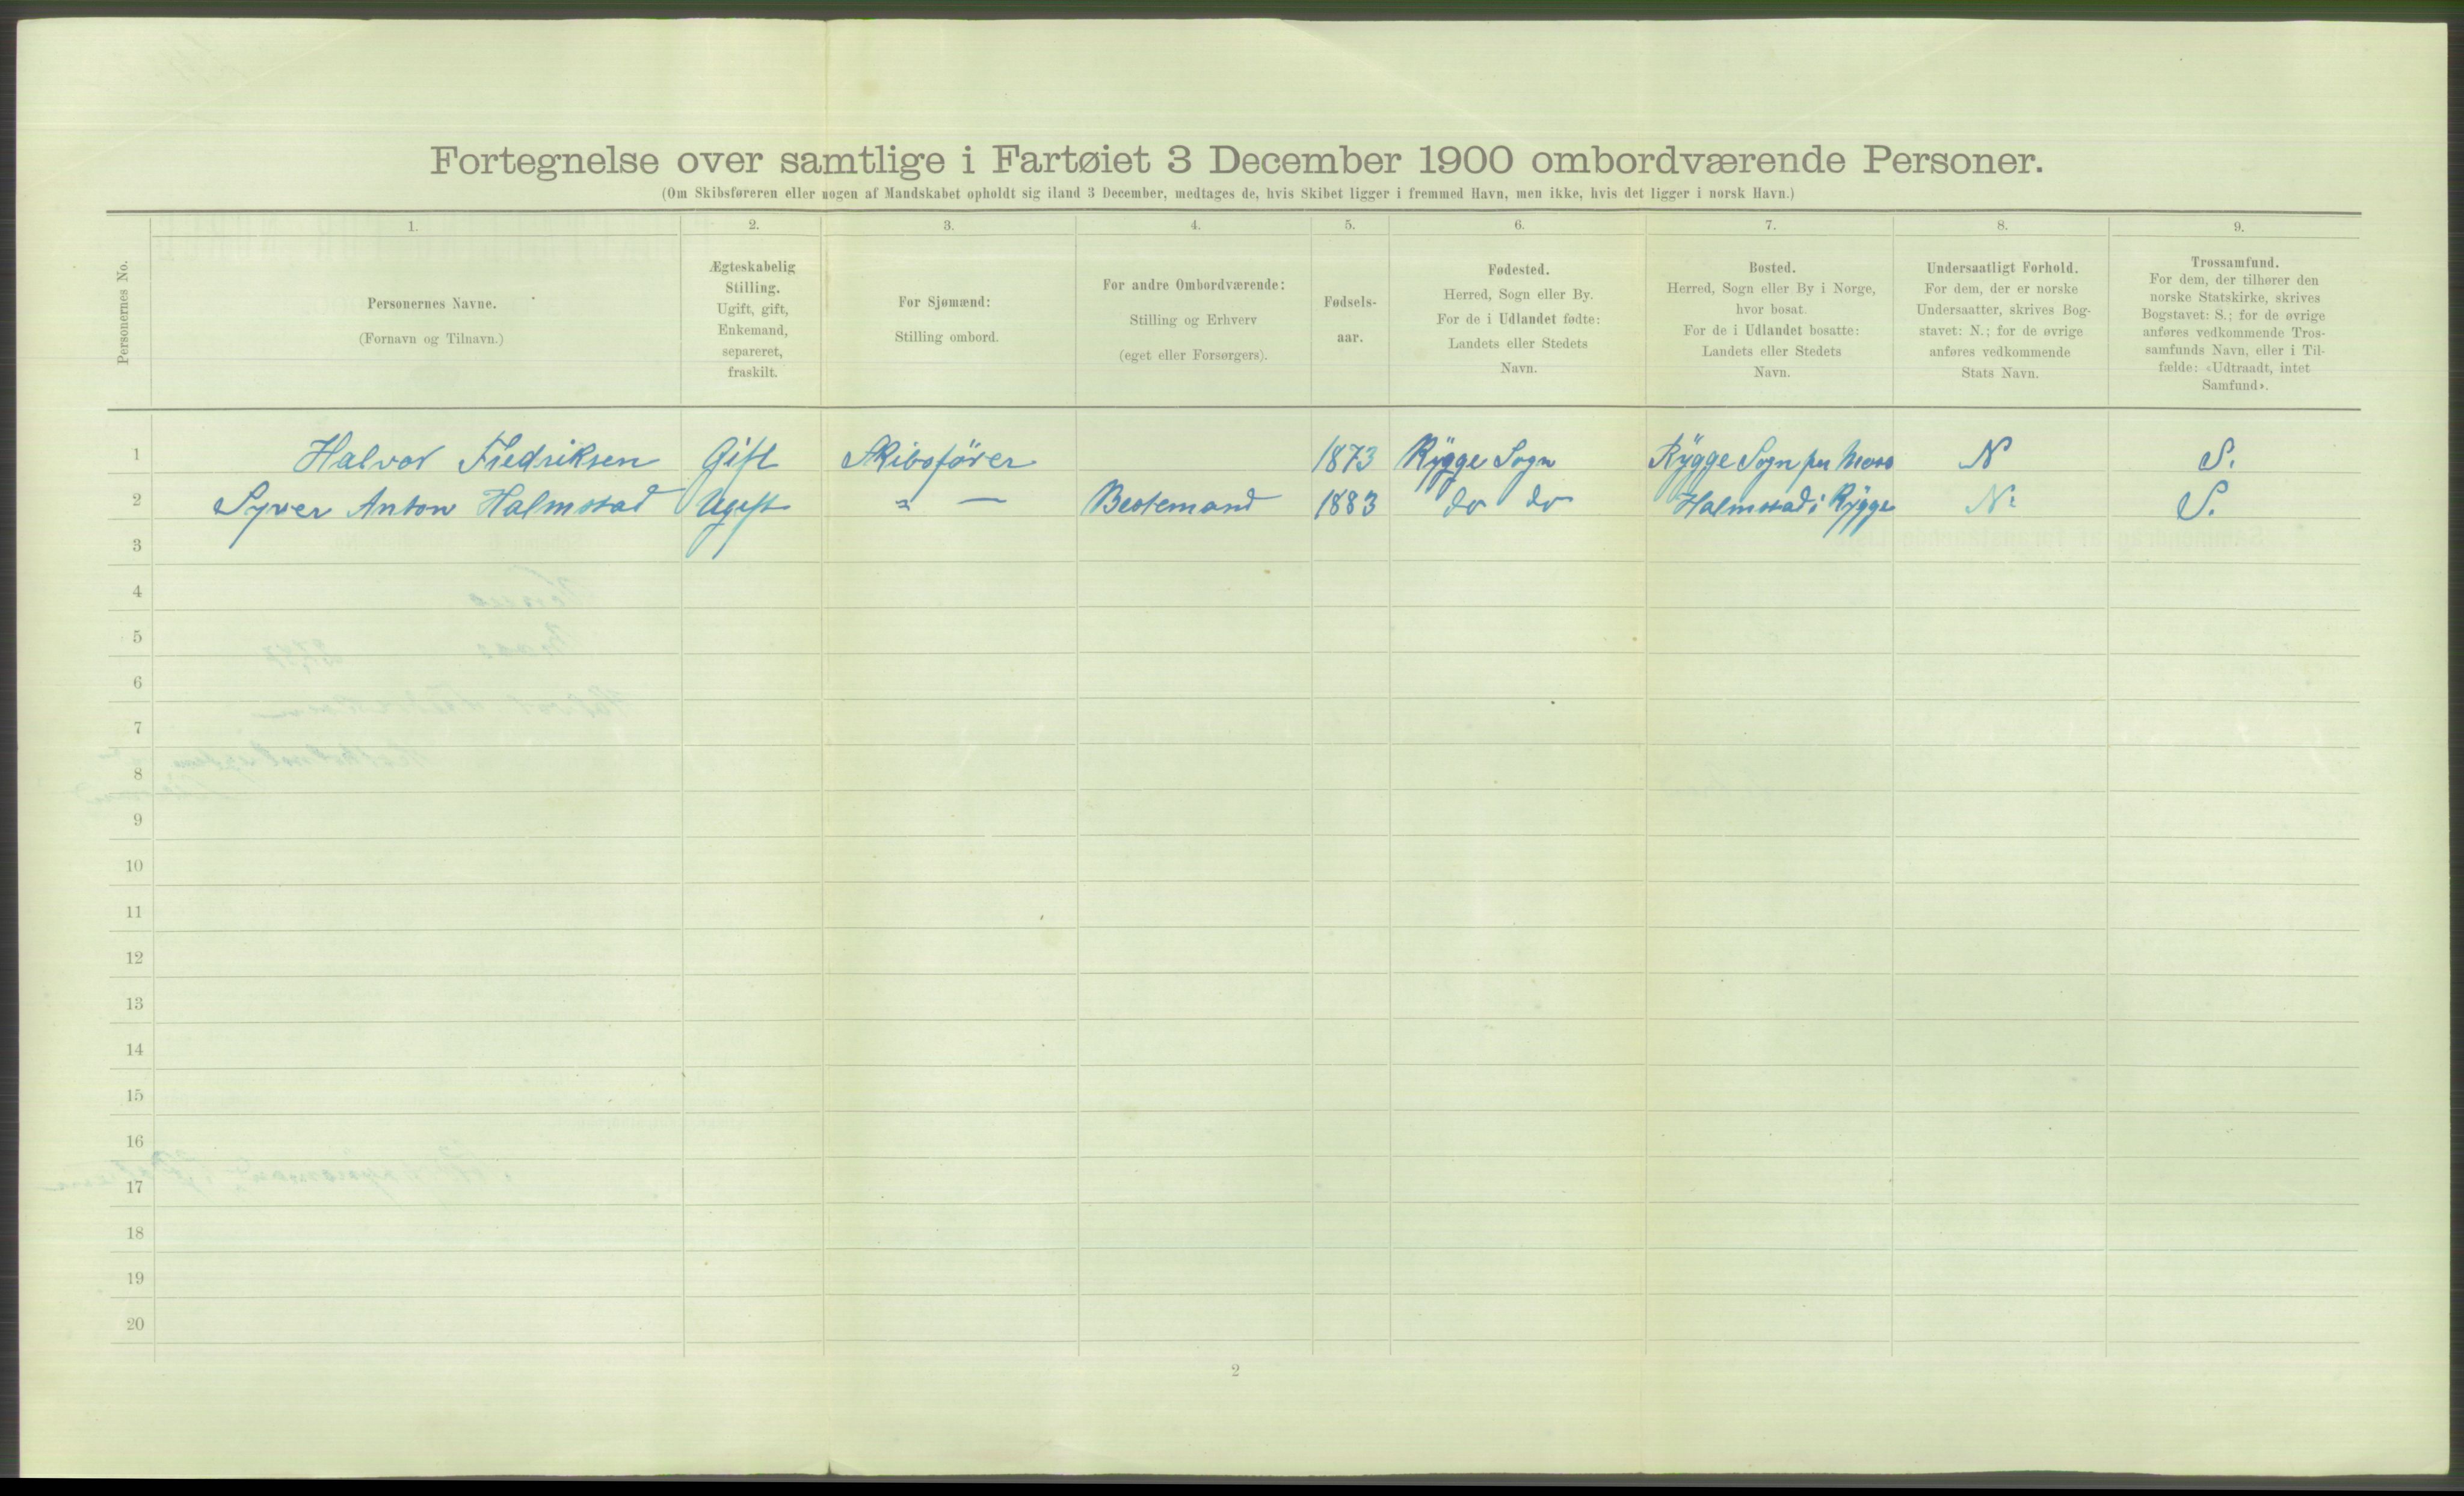 Fortegnelse over samtlige i Fartøiet 3 December 1900 ombordværende Personer.
(Om Skibsføreren eller nogen af Mandskabet opholdt sig iland 3 December, medtages de, hvis Skibet ligger i fremmed Havn, men ikke, hvis det ligger i norsk Havn.)
Personernes No.
1.
Personernes Navne.
(Fornavn og Tilnavn.)
2.
Ægteskabelig
Stilling.
Ugift, gift,
Enkemand,
separeret,
fraskilt.
3.
For Sjømænd:
Stilling ombord.
4.
For andre Ombordværende:
Stilling og Erhverv
(eget eller Forsørgers).
5.
Fødsels-
aar.
6.
Fødested.
Herred, Sogn eller By.
For de i Udlandet fødte:
Landets eller Stedets
Navn.
7.
Bosted.
Herred, Sogn eller By i Norge,
hvor bosat.
For de i Udlandet bosatte:
Landets eller Stedets
Navn.
8.
Undersaatligt Forhold.
For dem, der er norske
Undersaatter, skrives Bog-
stavet: N.; for de øvrige
anføres vedkommende
Stats Navn.
9.
Trossamfund.
For dem, der tilhører den
norske Statskirke, skrives
Bogstavet: S.; for de øvrige
anføres vedkommende Tros-
samfunds Navn, eller i Til-
fælde: «Udtraadt, intet
Samfund».
1 Halvor Fredriksen Gift Skibsfører 1873 Rygge Sogn Rygge Sogn per Moss N S.
2 Syver Anton Halmstad Ugift " — Bestemand 1883 do do Halmstad i Rygge N: S.
3
4
5
6
7
8
9
10
11
12
13
14
15
16
17
18
19
20
2